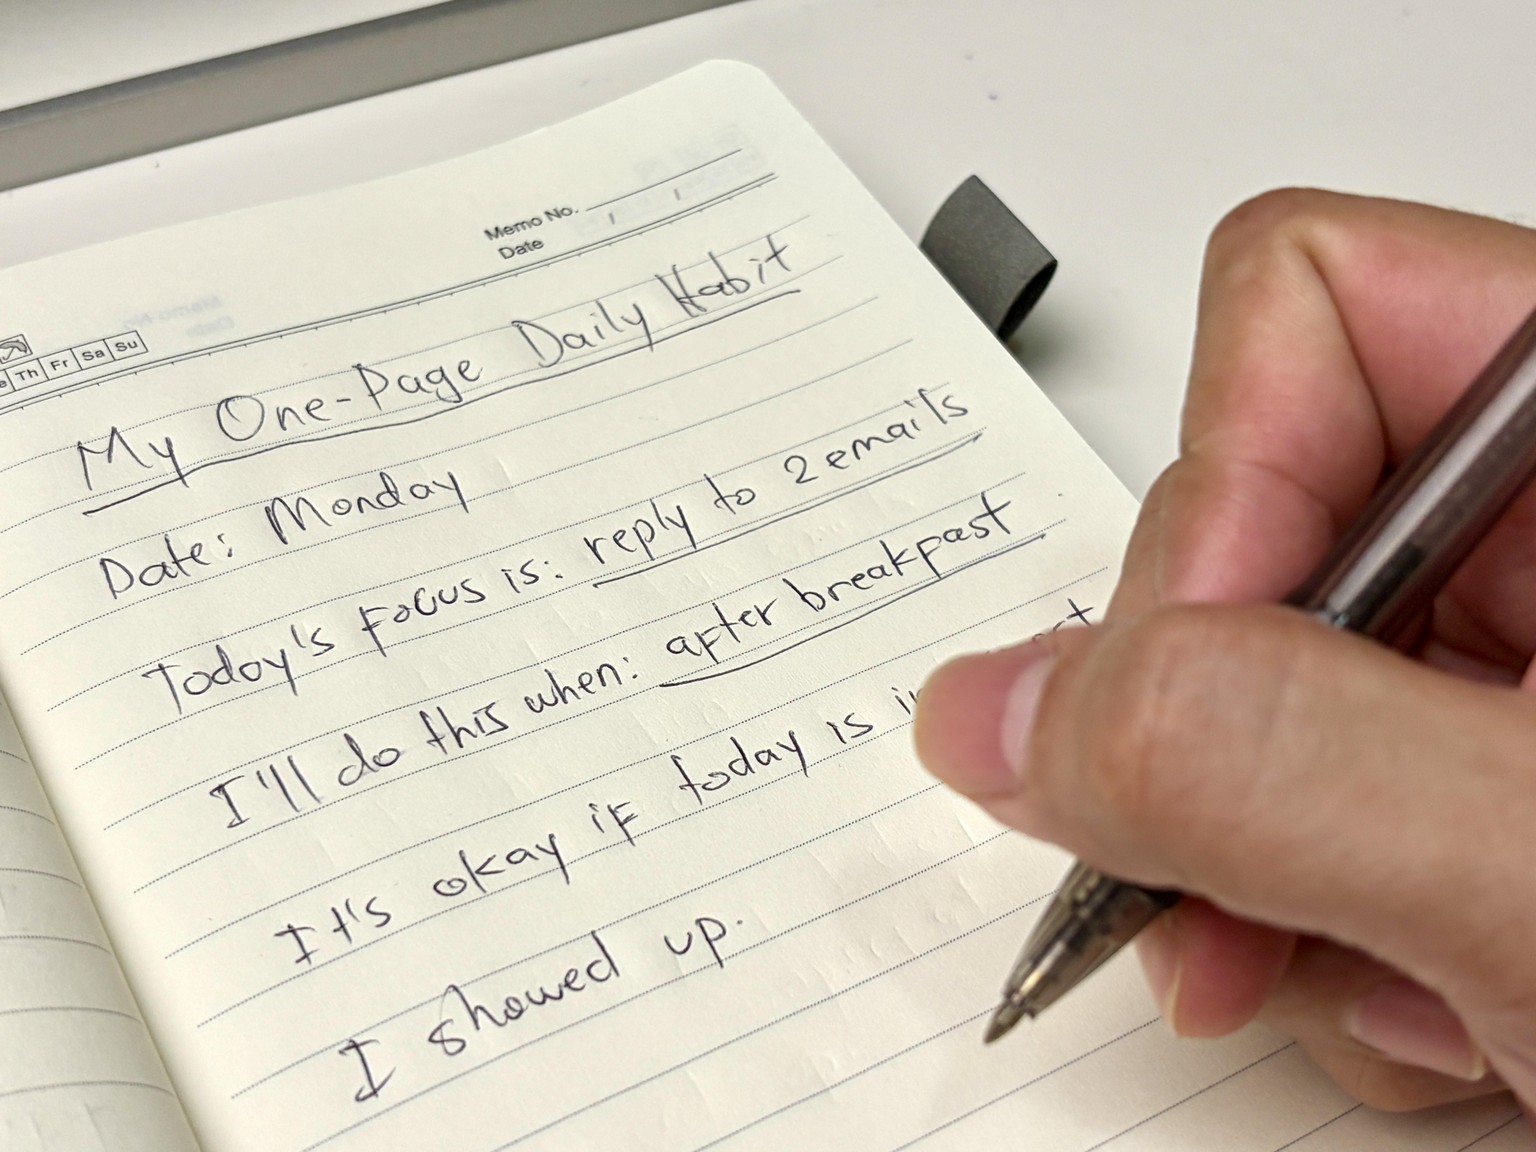 Memo No.
Date / /
Th Fr Sa Su
My One-Page Daily Habit
Date: Monday
Today's focus is: reply to 2 emails
I'll do this when: after breakfast
It's okay if today is
I showed up.